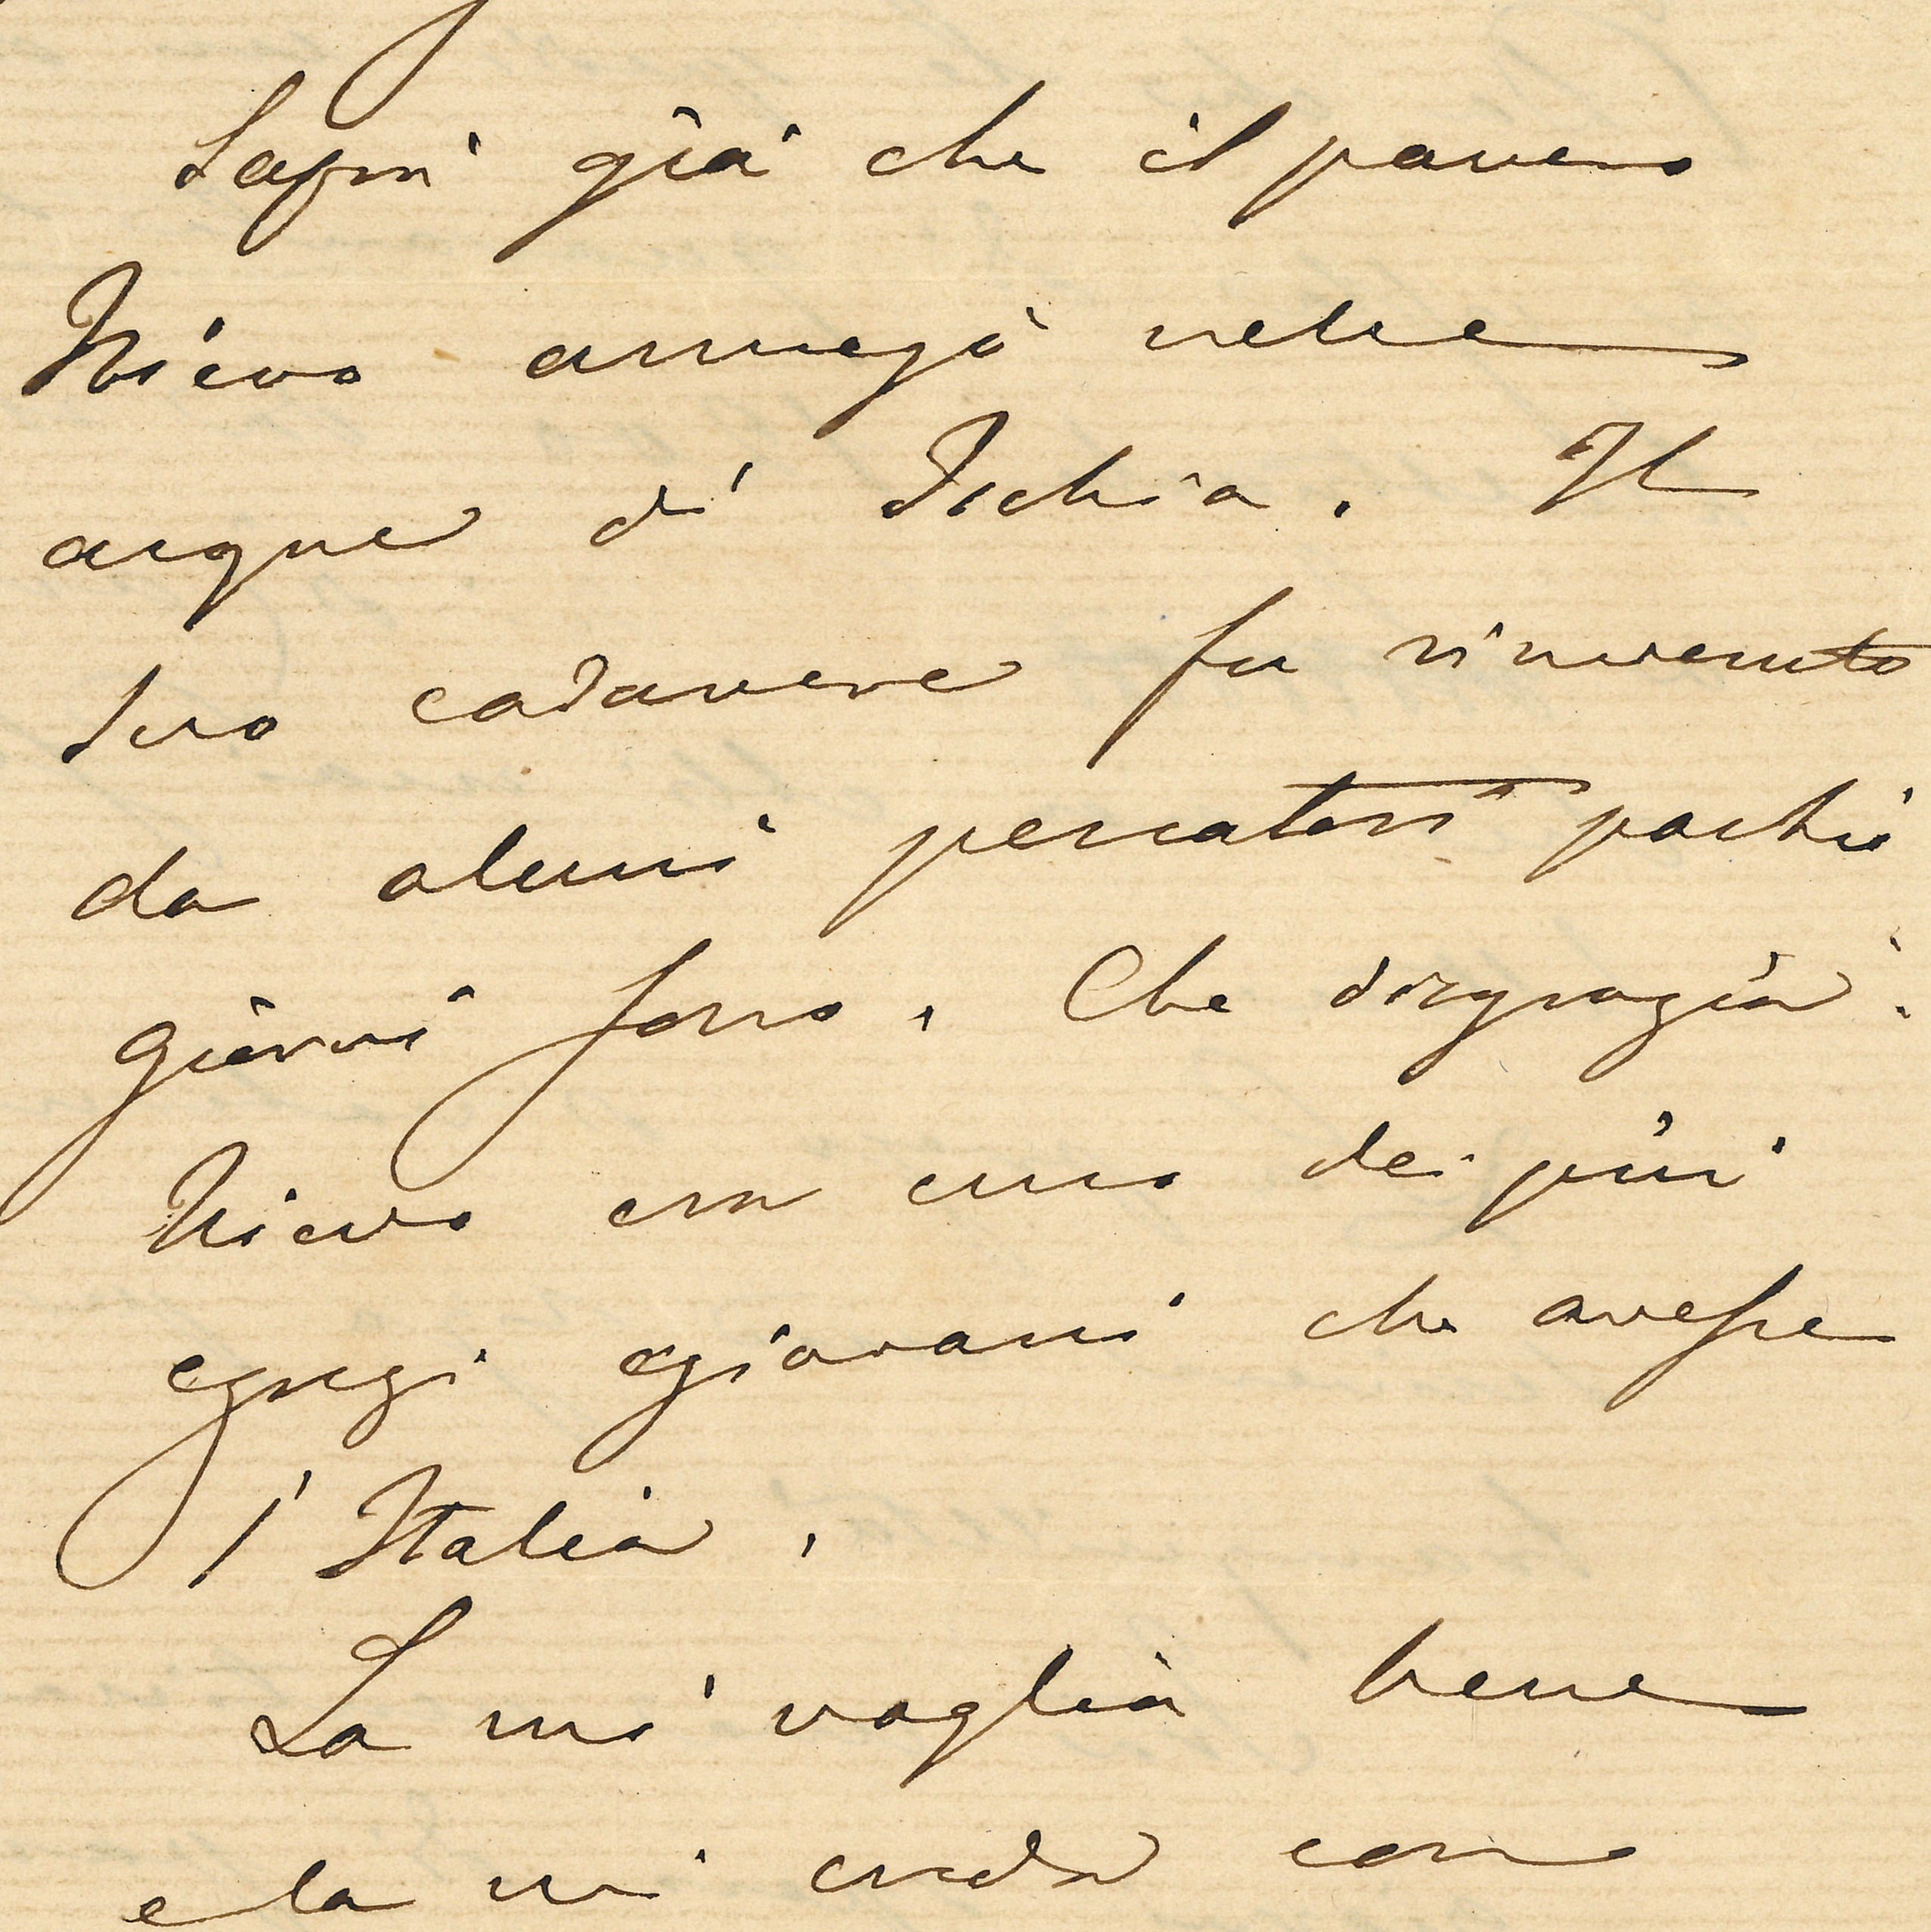 Saprà già che il povero
Nievo annegò nelle
acque di Ischia. Il
suo cadavere fu rinvenuto
da alcuni pescatori pochi
giorni sono. Che disgrazia.
Nievo era uno dei più
egregi giovani che avesse
l'Italia.
La mi voglia bene
e la mi creda con